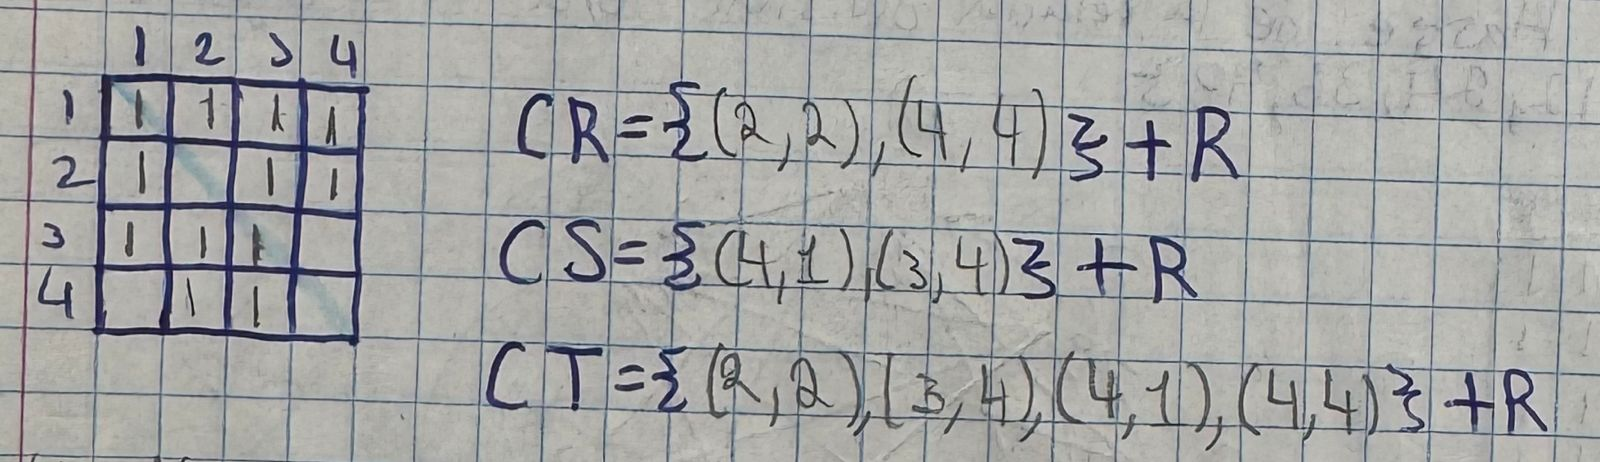 1 2 3 4
1 1 1 1 1
2 1 1 1
3 1 1 1
4 1 1
CR={(2,2),(4,4)}+R
CS={(4,1),(3,4)}+R
CT={(2,2),(3,4),(4,1),(4,4)}+R